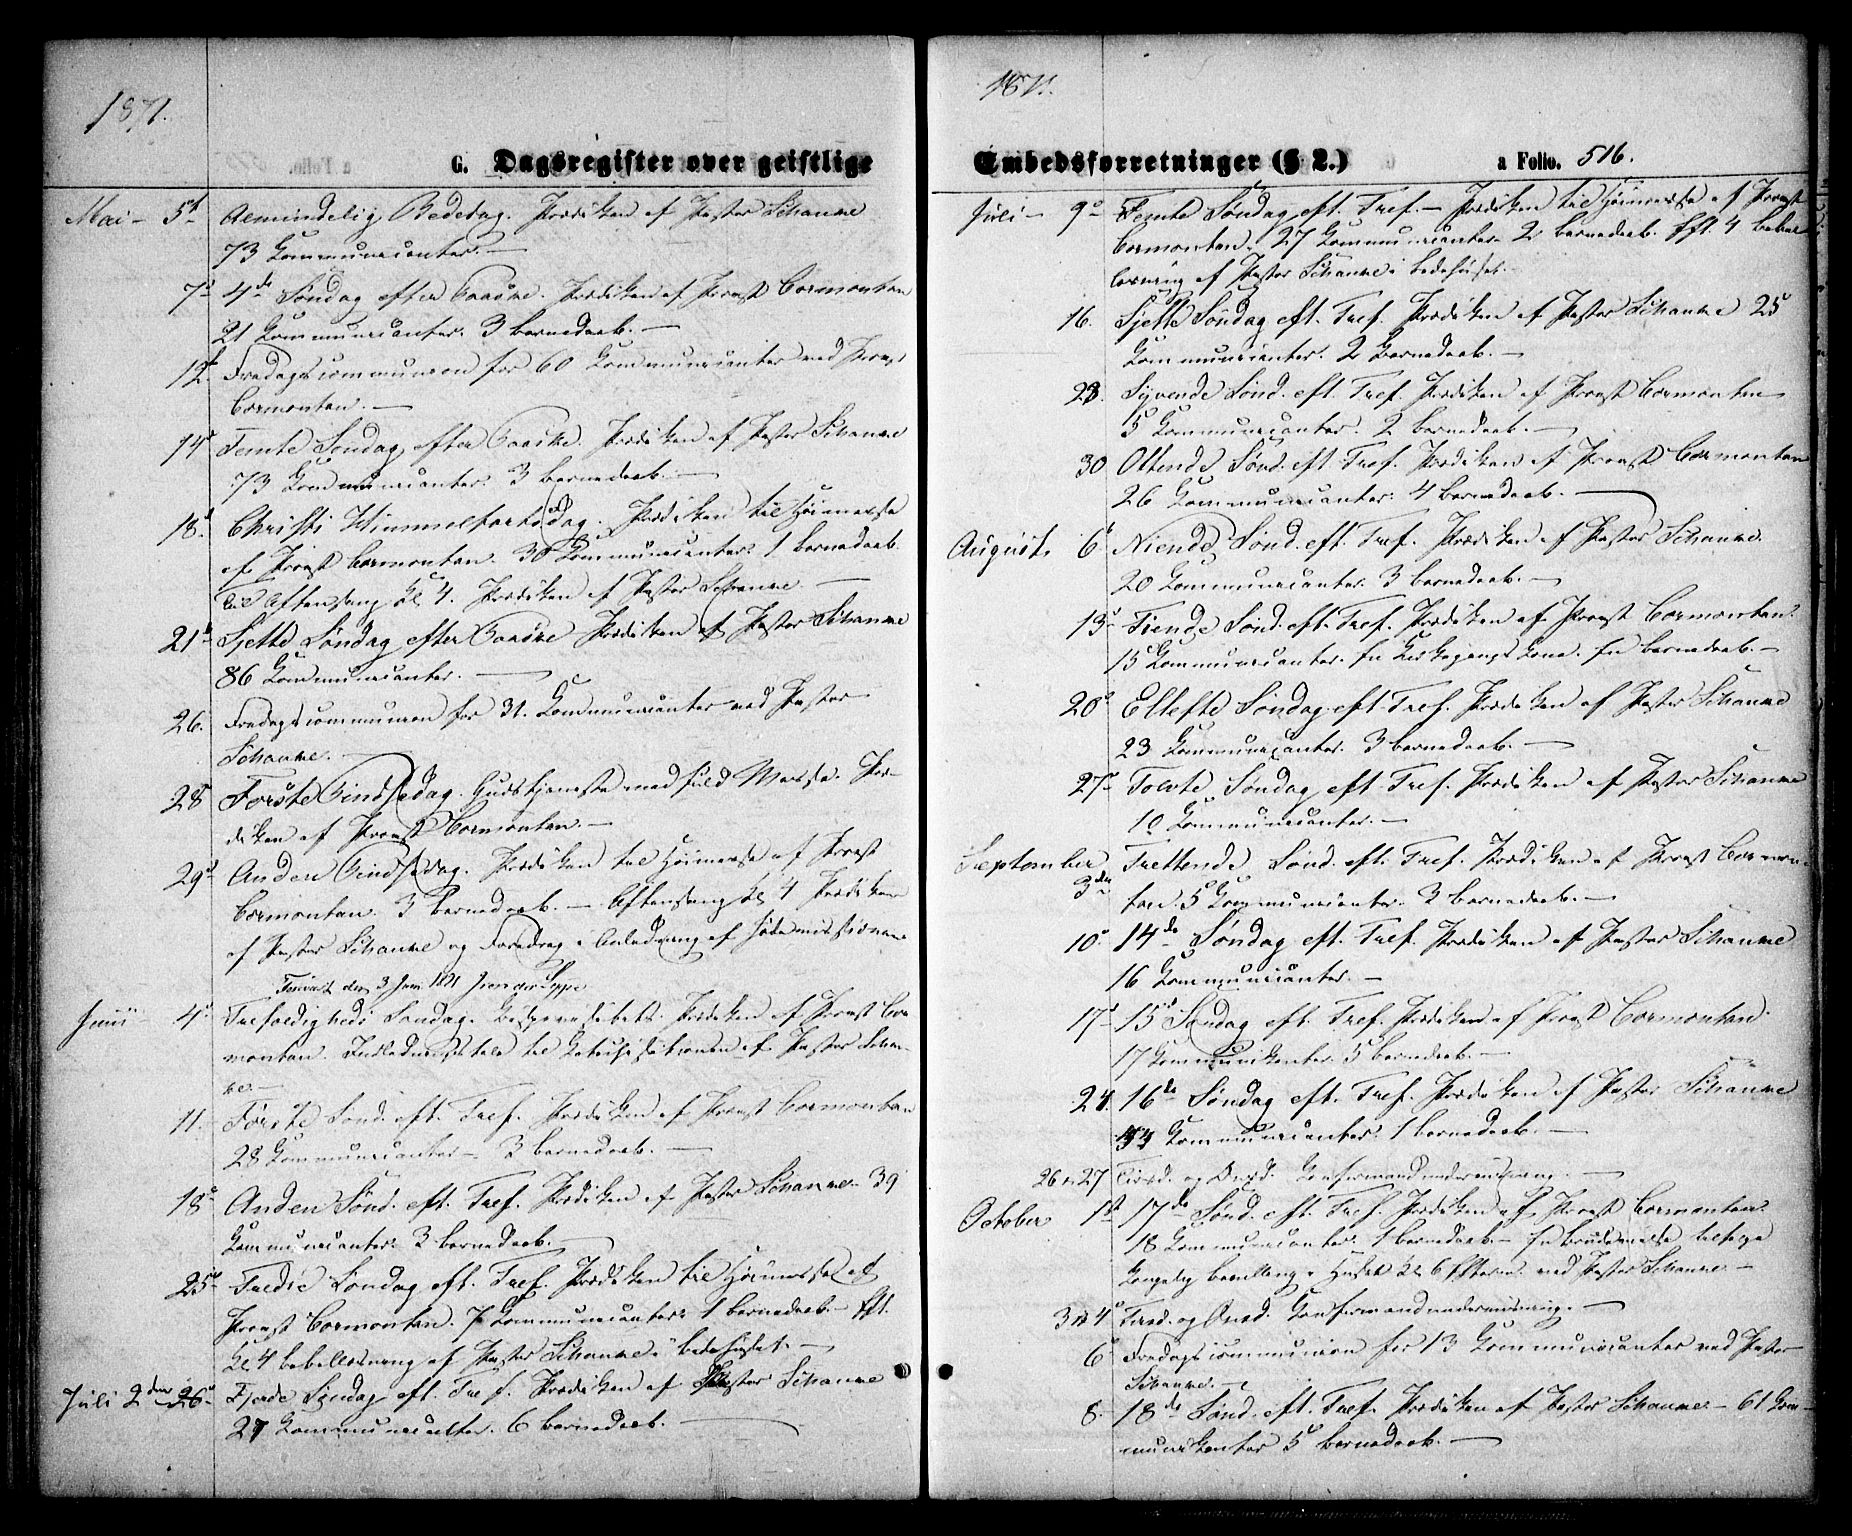 1871.
G. Dagsregister over geistlige
Mai - 5te Almindelig Bededag. Prædiken af Pastor Schanke
73 Communicanter. -
7de 4de Søndag efter Paaske. Prædiken af Provst Cormontan
21 Communicanter. 3 barnedaab. -
12. Fredagscommunion for 60 Communicanter ved Provst
Cormontan. -
14de Femte Søndag efter Paaske. Prædiken af Pastor Schanke
73 Communicanter. 3 barnedaab. -
18de Christi Himmelfartsdag. Prædiken til Høimesse
af Provst Cormontan. 30 Communicanter. 1 barnedaab.
til Aftensang Kl 4. Prædiken af Pastor Schanke -
21de Sjette Søndag efter Paaske Prædiken af Pastor Schanke
86 Communicanter. -
26. Fredagscommunion for 31. Communicanter ved Pastor
Schanke. -
28de Første Pindsedag. Gudstjeneste med fuld Messe. Præ-
diken af Provst Cormontan. -
29de Anden Pindsedag. Prædiken til Høimesse af Provst
Cormontan. 3 barnedaab. - Aftensang Kl 4 Prædiken
af Pastor Schanke og Foredrag i Anledning af Jødemissionen
den 3 Juni 1871
Juni 4de Trefoldigheds Søndag. Prædiken af Provst Cor
montan. Indledningstale til Catechisationen af Pastor Schan-
ke. -
11. Første Sønd. eft. Tref. Prædiken af Provst Cormontan
28 Communicanter - 3 barnedaab. -
18de Anden Sønd. eft. Tref. Prædiken af Pastor Schanke - 39
Communicanter. 3 barnedaab. -
25de Tredie Søndag eft. Tref. Prædiken til Høimesse af
Provst Cormontan. 7 Communicanter. 1 barnedaab. - Eft.
Kl 4 bibellæsning af Pastor Schanke i bedehuset. -
Juli 2den 26de Fjerde Søndag eft. Tref. Prædiken af Pastor Schanke
27 Communicanter. 6 barnedaab. -
1871.
Embedsforretninger (§ 2.) a Folio. 516.
Juli - 9de Femte Søndag eft. Tref. - Prædiken til Høimesse af Provst
Cormontan. 27 Communicanter 2 barnedaab. Eft. 4 bibel
læsning af Pastor Schanke i bedehuset. -
16. Sjette Søndag eft. Tref. Prædiken af Pastor Schanke 25
Communicanter. 2 barnedaab. -
23. Syvende Sønd. eft. Tref. Prædiken af Provst Cormontan
5 Communicanter. 2 barnedaab. -
30 Ottende Sønd. eft. Tref. Prædiken af Provst Cormontan
26 Communicanter. 4 barnedaab. -
August 6te Niende Sønd. eft. Tref. Prædiken af Pastor Schanke.
20 Communicanter. 3 barnedaab. -
13de Tiende Sønd. eft. Tref. Prædiken af Provst Cormontan.
15 Communicanter. En Kirkegangskone. En barnedaab. -
20de Ellefte Søndag eft. Tref. Prædiken af Pastor Schanke
23 Communicanter. 3 barnedaab. -
27de Tolvte Søndag eft. Tref. Prædiken af Pastor Schanke
10 Communicanter. -
September Trettende Sønd. eft. Tref. Prædiken af Provst Cormon-
3die tan. 5 Communicanter. 3 barnedaab. -
10de 14de Søndag eft. Tref. Prædiken af Pastor Schanke
16 Communicanter. -
17de 15de Søndag eft. Tref. Prædiken af Provst Cormontan.
17 Communikanter. 5 barnedaab. -
24. 16de Søndag eft. Tref. Prædiken af Pastor Schanke
Communicanter. 1 barnedaab. -
26 & 27 Tirsd. og Onsd. Confirmandundervisning. -
October 1ste 17de Sønd. eft. Tref. Prædiken af Provst Cormontan.
18 Communicanter. 1 barnedaab - En brudevielse ifølge
Kongelig bevilling i Huset Kl 6 Efterm. ved Pastor Schanke. -
3 & 4de Tirsd. og Onsd. Confirmandundervisning. -
6te Fredagscommunion for 13 Communicanter ved Pastor
Schanke. -
8. 18de Sønd. eft. Tref. Prædiken af Pastor Schanke - 61 Com-
munikanter 5 barnedaab. -